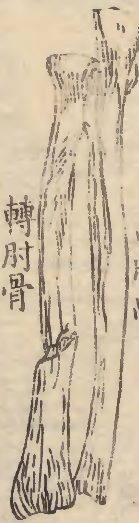 轉肘骨